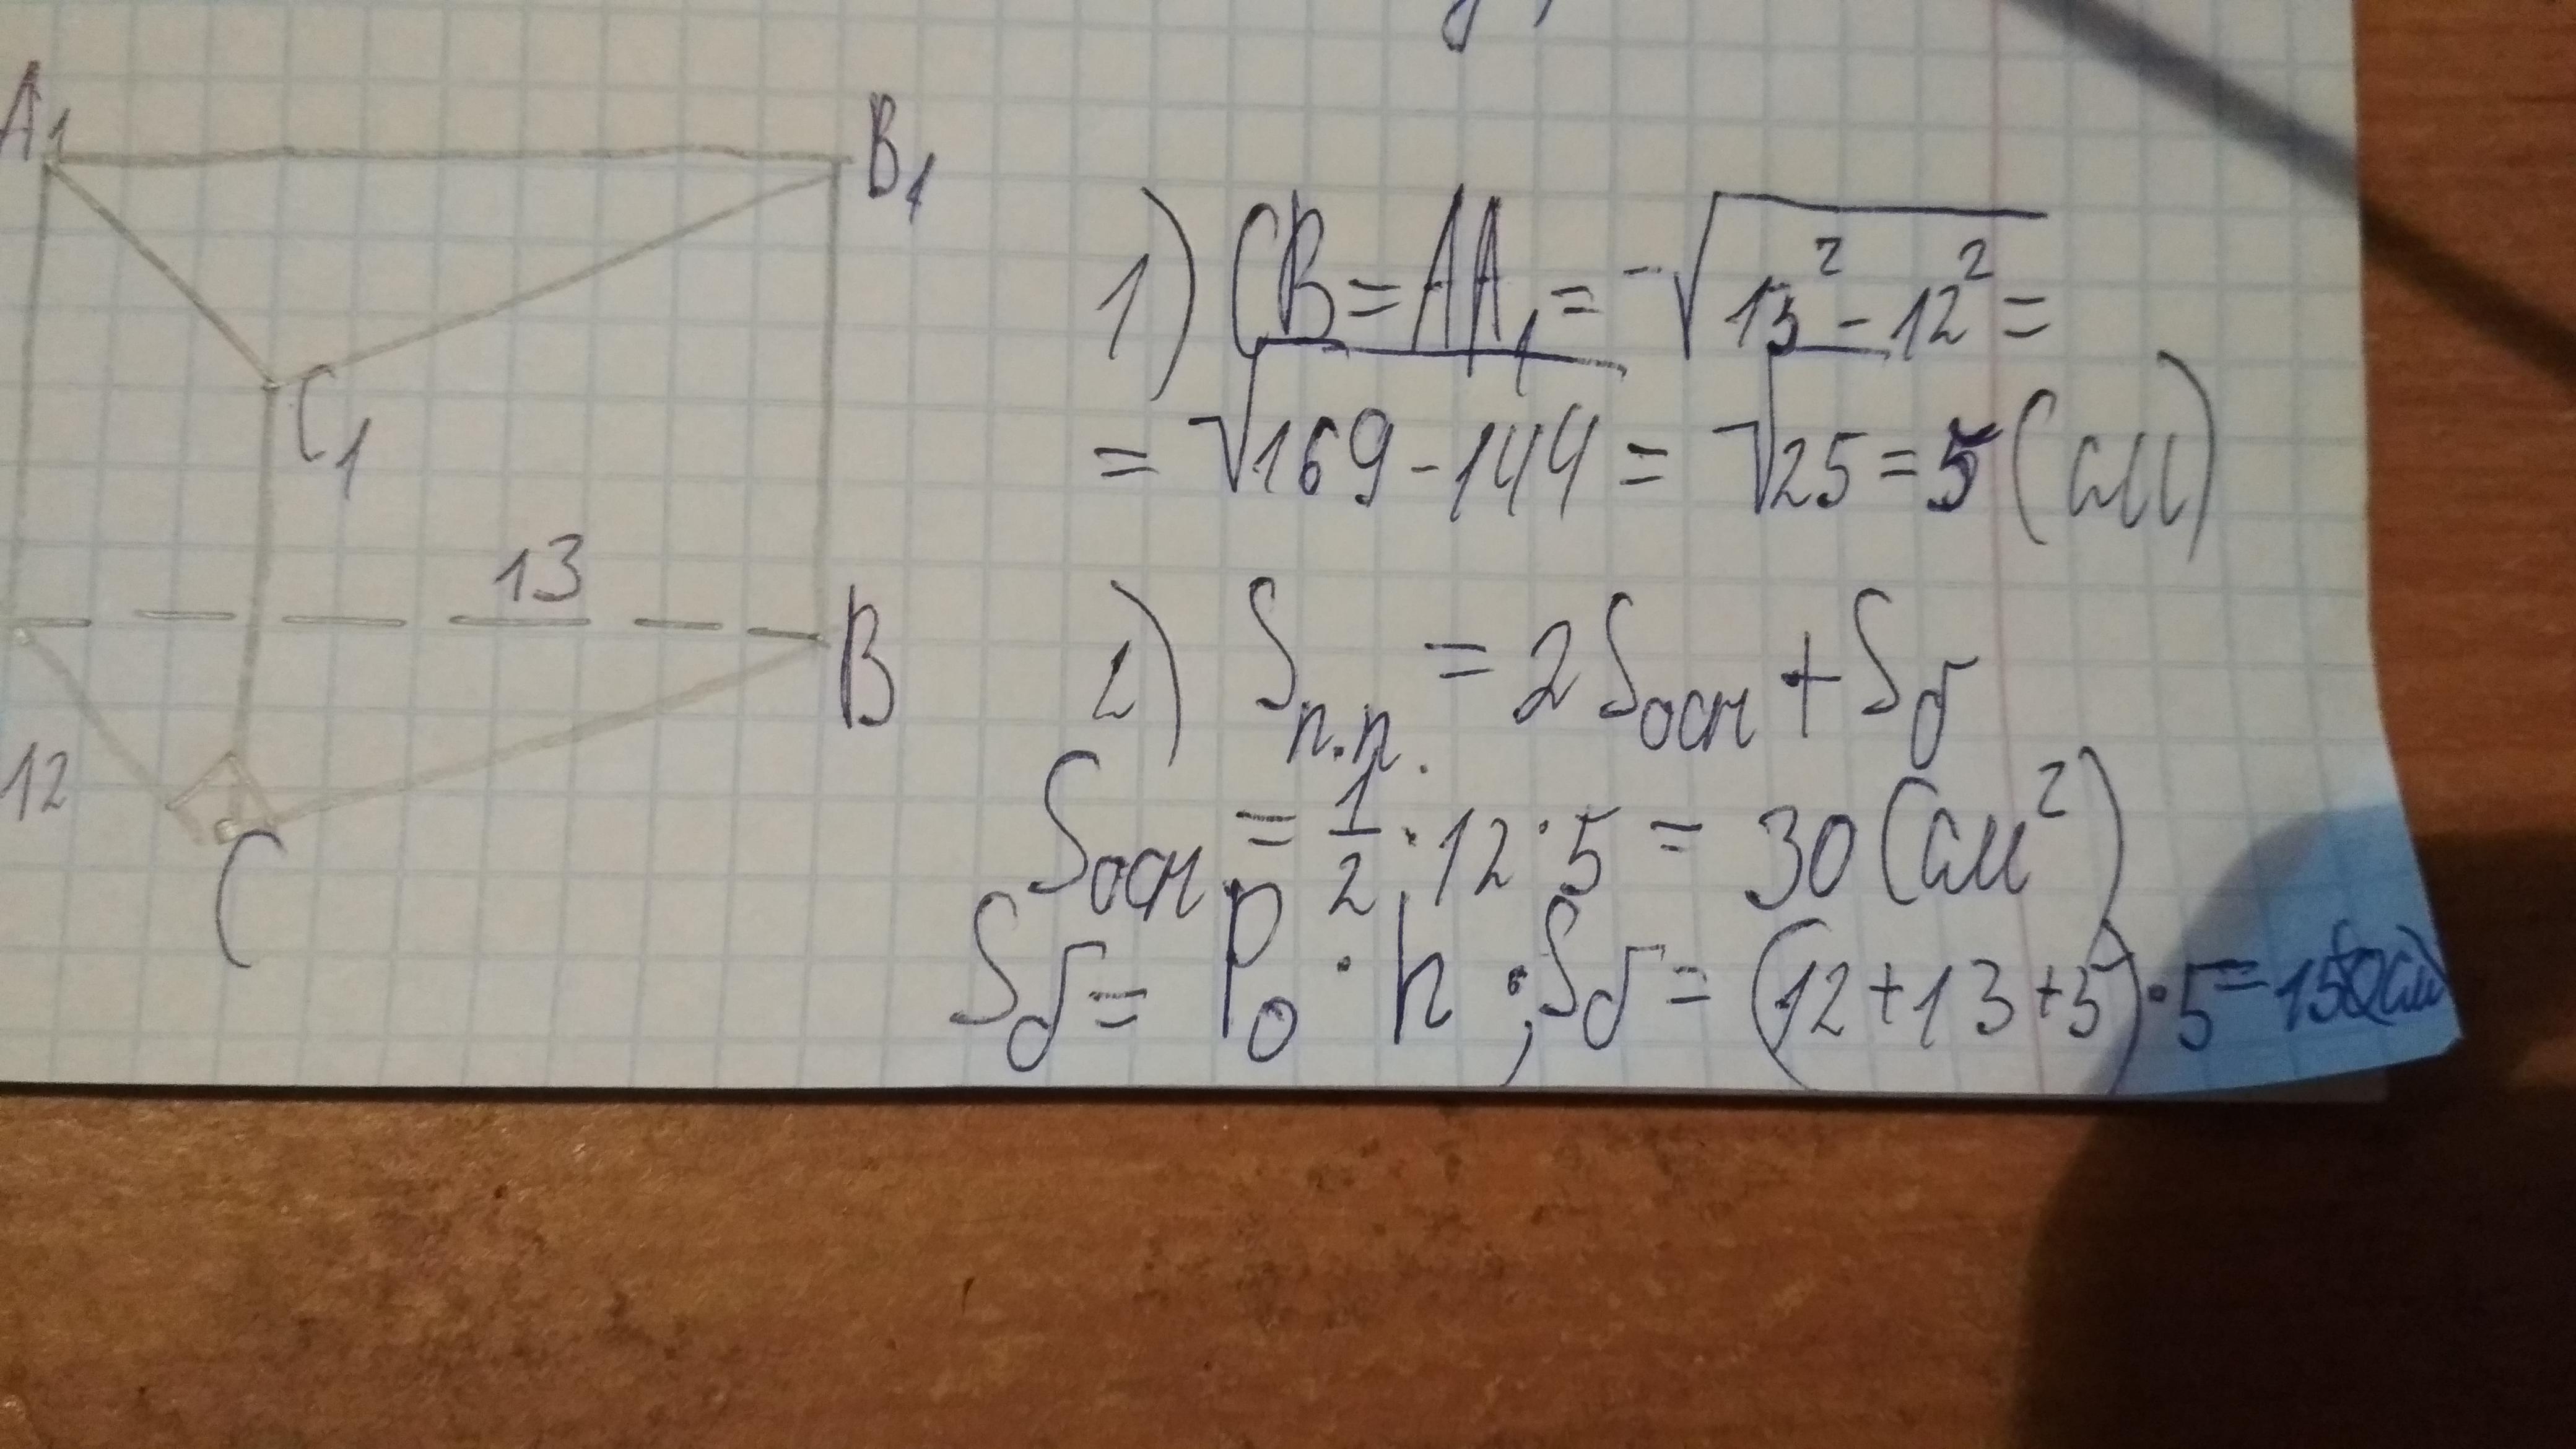 A₁
B₁
C₁
13
B
12
C
1) CB = AA₁ = √13² - 12² =
= √169 - 144 = √25 = 5 (см)
2) Sп.п. = 2Sосн + Sб
Sосн = 1/2 · 12 · 5 = 30 (см²)
Sб = Pо · h ; Sб = (12 + 13 + 5) · 5 = 150(см)